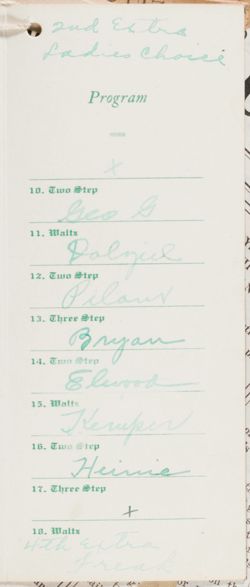 2nd Extra
Ladies Choice
Program
x
10. Two Step
Geo G
11. Waltz
Dalziel
12. Two Step
Pilant
13. Three Step
Bryan
14. Two Step
Elwood
15. Waltz
Kemper
16. Two Step
Heinie
17. Three Step
x
18. Waltz
4th Extra
Freak